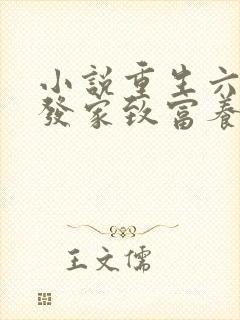 小說重生六
發家致富養
王文儒